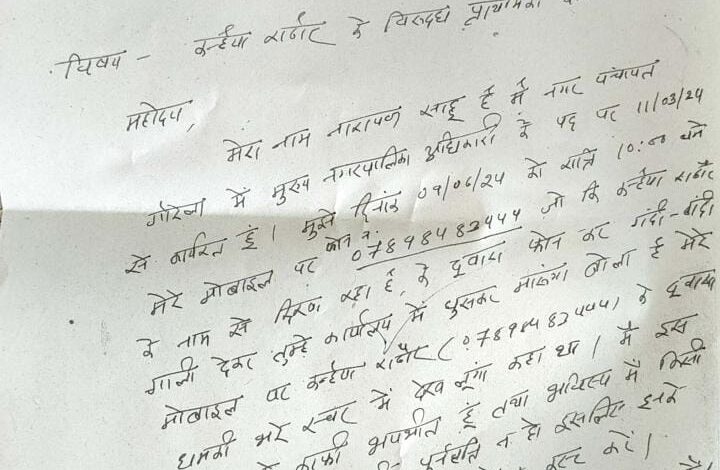 विषय - कन्हैया राठौर के विरुद्ध प्राथमिकी
महोदय,
मेरा नाम नारायण साहू है मैं नगर पंचायत
गौरेला में मुख्य नगरपालिका अधिकारी के पद पर 11/03/24
से कार्यरत हूं। मुझे दिनांक 09/06/24 को रात्रि 10:00 बजे
मेरे मोबाइल पर फोन नं. 07898483444 जो कि कन्हैया राठौर
के नाम से दिख रहा है, के द्वारा फोन कर गंदी-गंदी
गाली देकर तुम्हे कार्यालय में घुसकर मारूंगा बोला है मेरे
मोबाइल पर कन्हैया राठौर (07898483444) के द्वारा
धमकी भरे स्वर में देख लूंगा कहा था। मैं इस
काफी भयभीत हूं तथा भविष्य में किसी
न हो इसलिए इनके
करें।